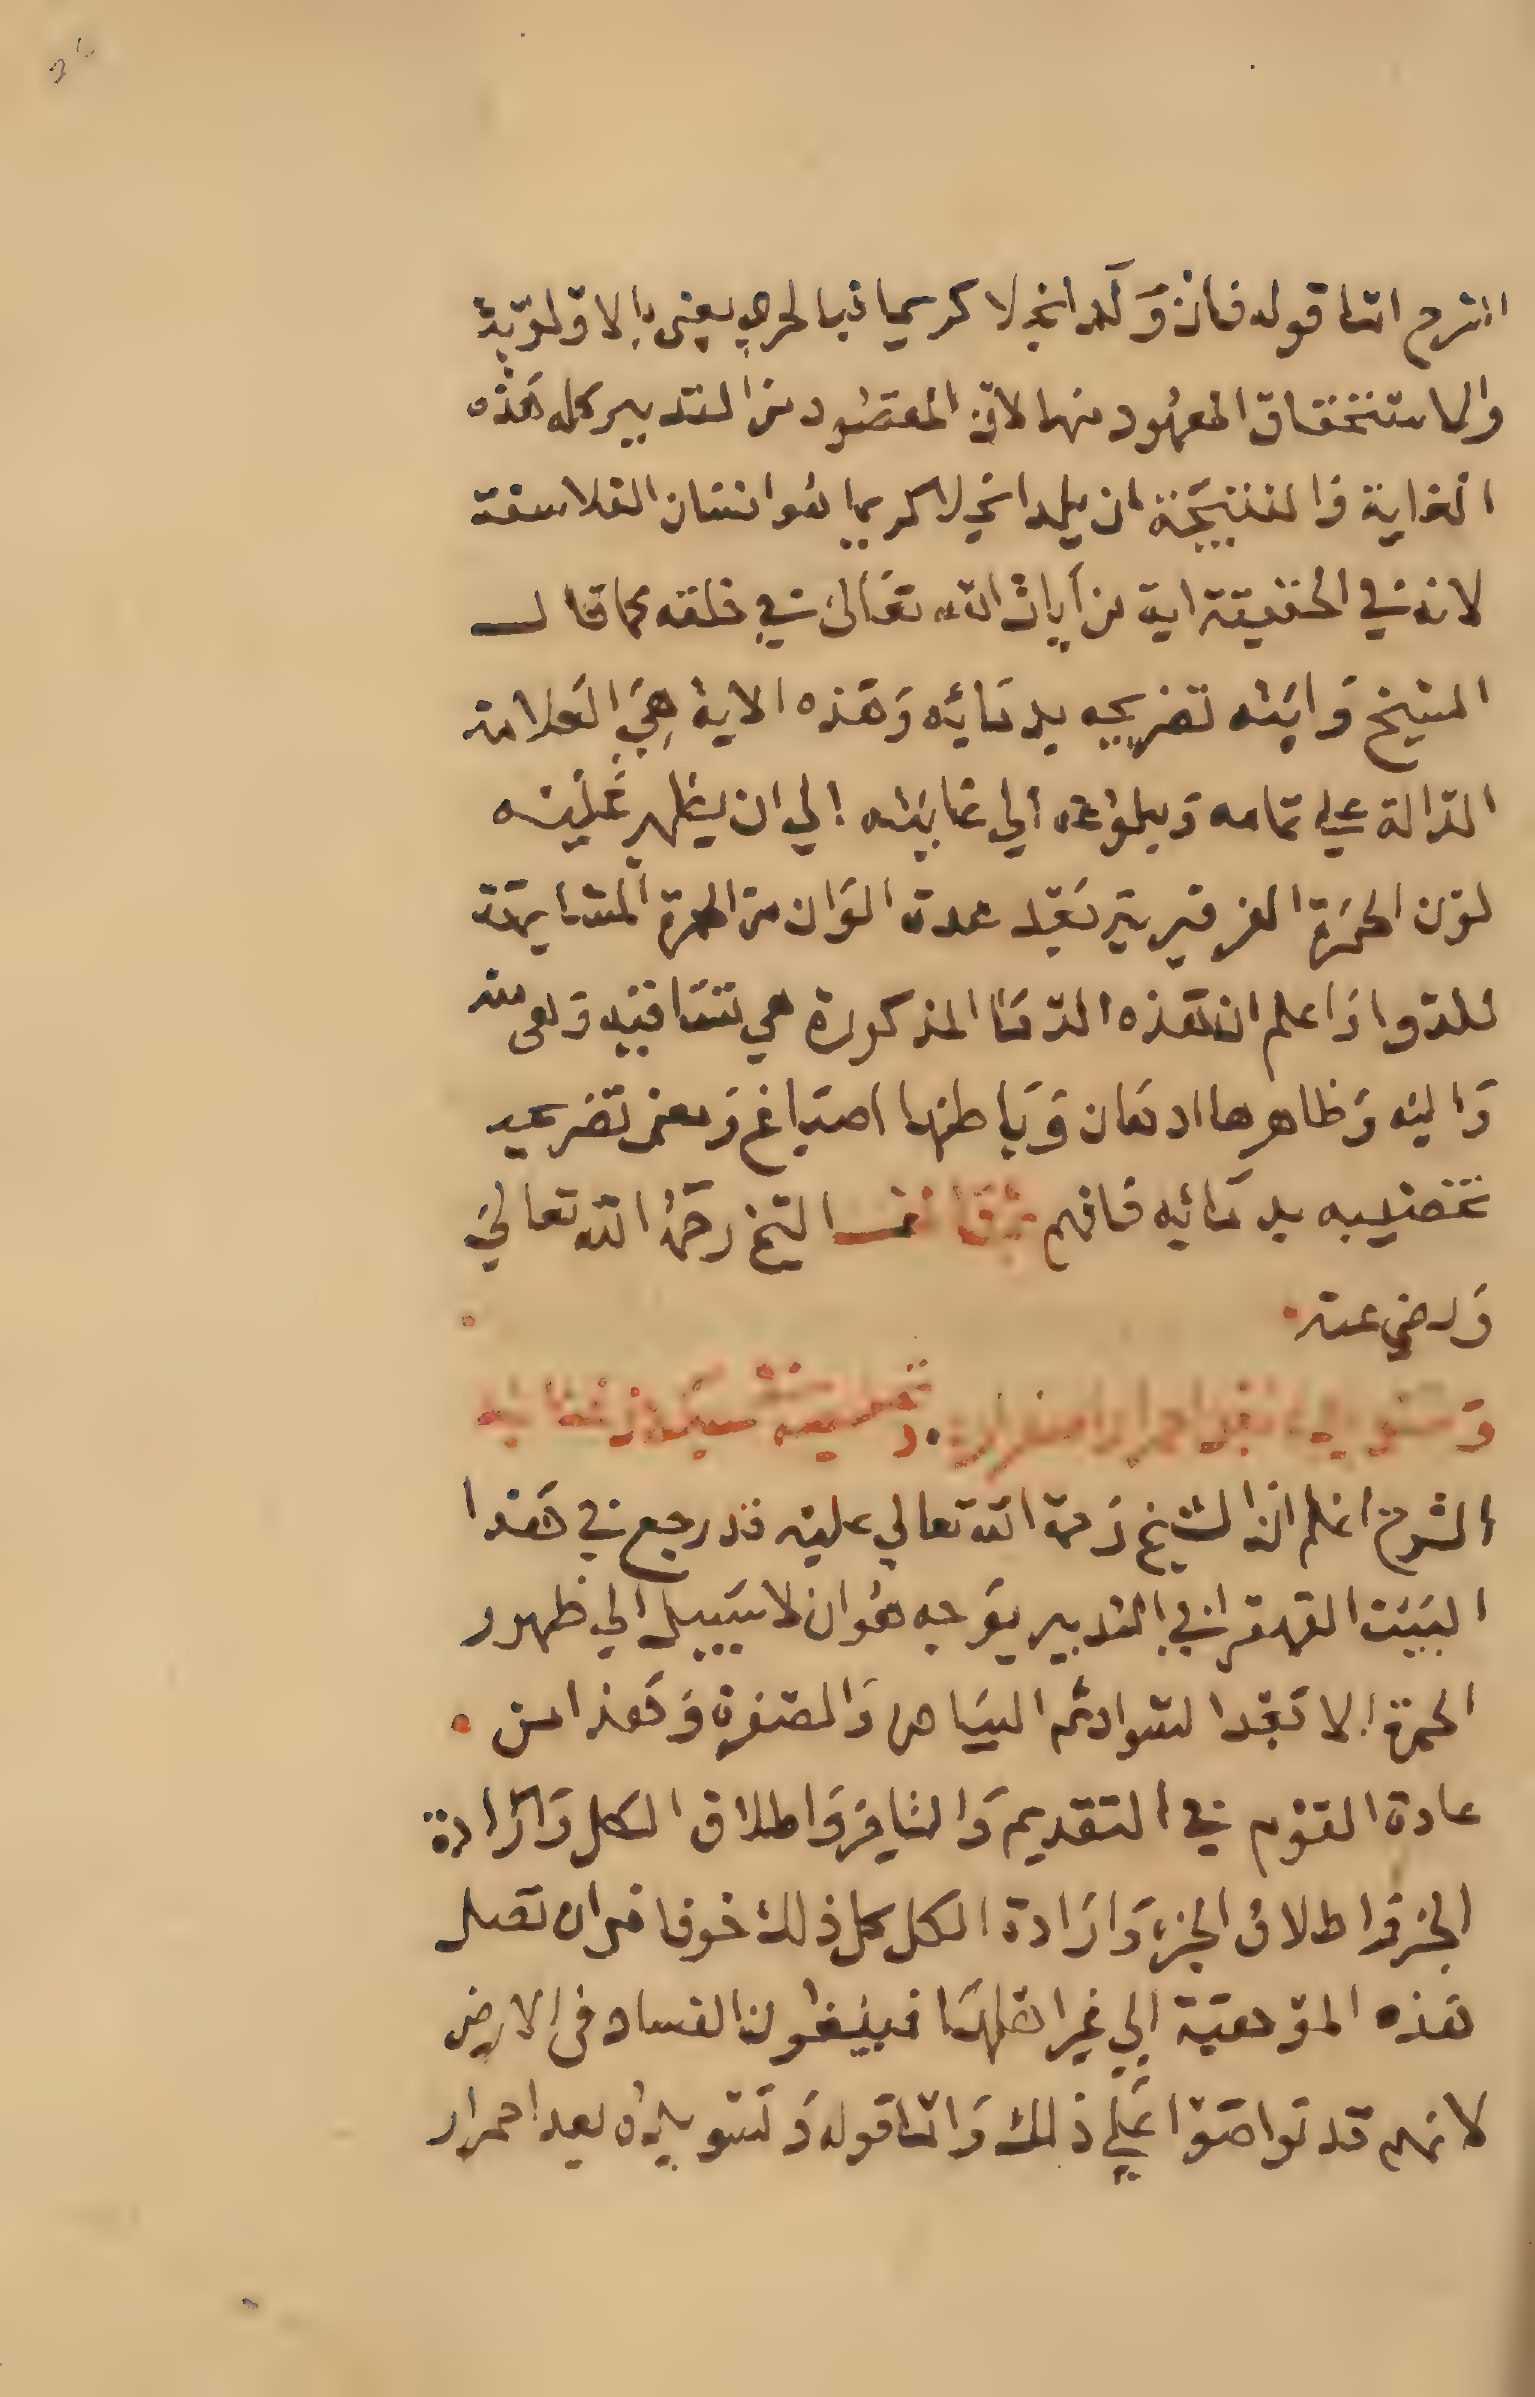 الشرح اما قوله فان ولد انجلا كريما فبالحري يعني بالاولوية
والاستحقاق المعهود منها لان المقصود من التدبير كله هذه
الغاية والنتيجة ان يلد انجلا كريما هو انسان الفلاسفة
لانه في الحقيقة اية من آيات الله تعالى في خلقه كما قال
الشيخ وايته تضريجه بدمائه وهذه الاية هي العلامة
الدالة على تمامه وبلوغه الي غايته الي ان يظهر عليه
لون الحمرة الفرفيرية بعد عدة الوان من الحمرة المشابهة
للدم واعلم ان هذه الدما المذكورة هي تساقيه وهى منه
واليه وظاهرها ادهان وباطنها اصباغ ومعنى تضرجه
تخضيبه بدمائه فافهم ثم قال الشيخ رحمه الله تعالي
ورضي عنه
وتسويده بعد احمرار اصفراره
الشرح اعلم ان الشيخ رحمة الله تعالي عليه قد رجع في هذا
البيت القهقرا في التدبير بوجه هو ان لا سبيل الي ظهور
الحمرة الا بعد السواد ثم البياض والصفرة وهذا من
عادة القوم في التقديم والتاخير واطلاق الكل وارادة
الجزء واطلاق الجزء وارادة الكل كل ذلك خوفا من ان تصل
هذه الموهبة الي غير اهلها فيبغون الفساد في الارض
لانهم قد تواصوا علي ذلك واما قوله وتسويده بعد احمرار